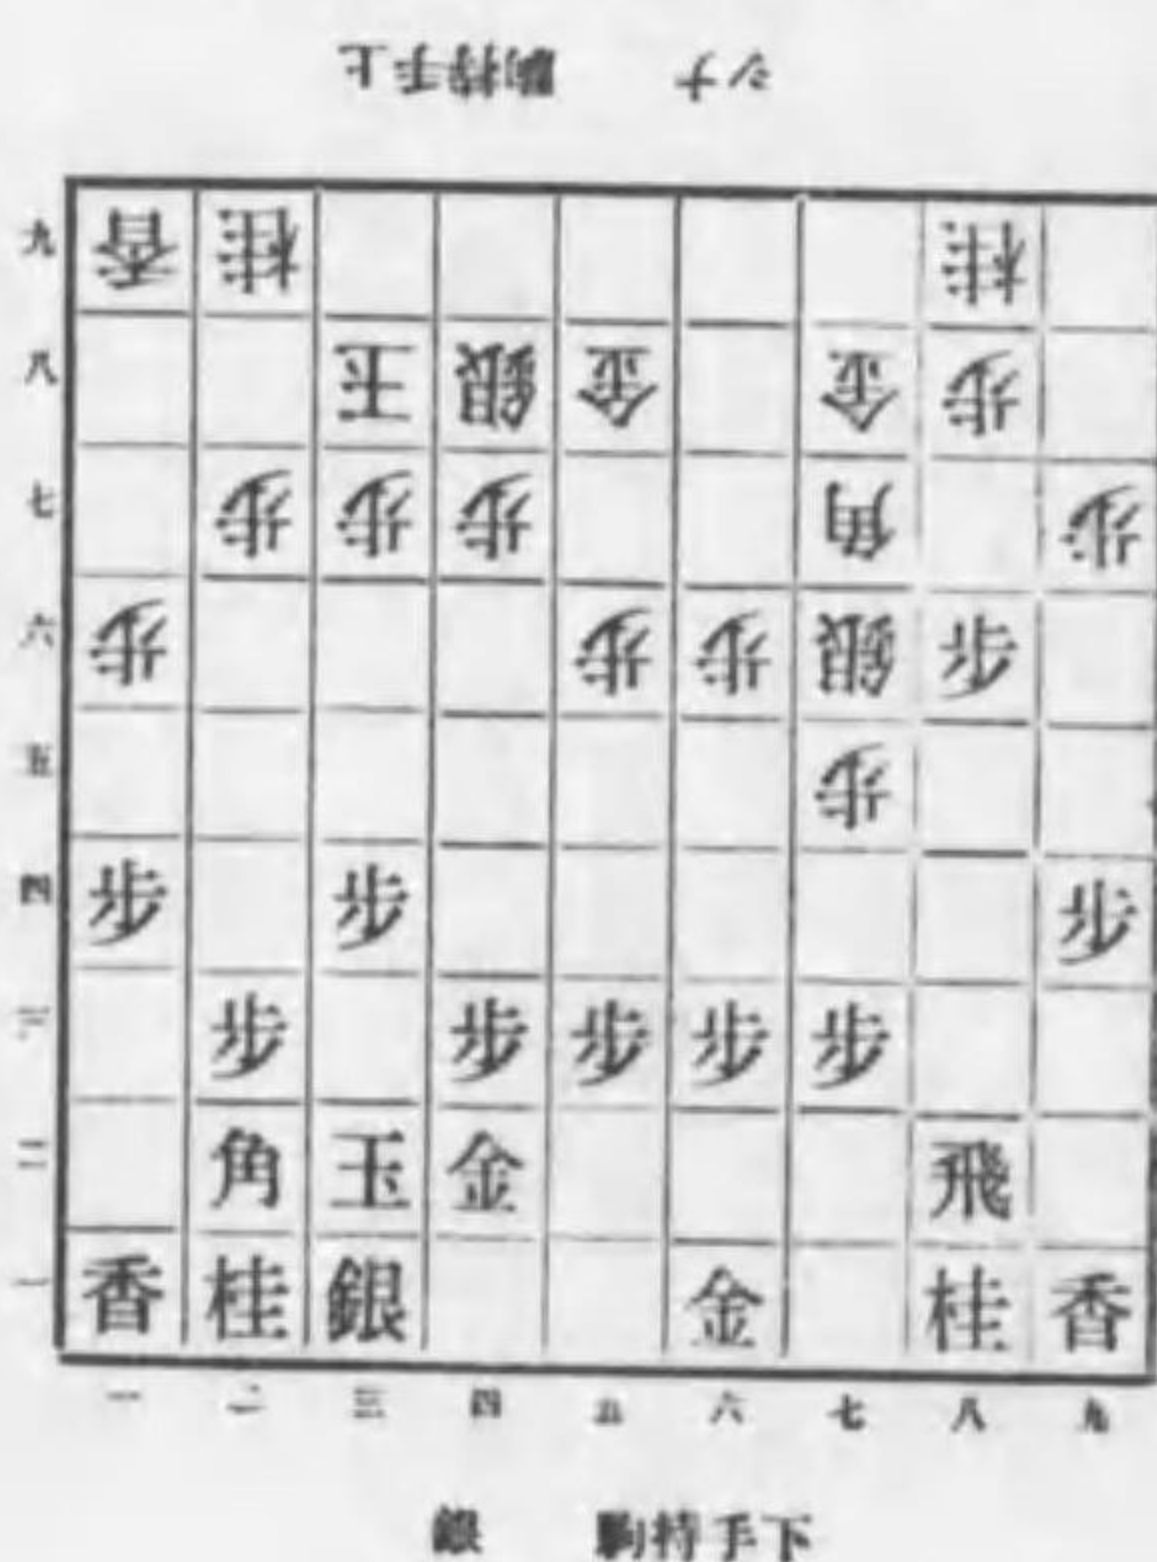 上手持駒 ナシ
九 香 桂 桂
八 玉 銀 金 金 歩
七 歩 歩 歩 角 歩
六 歩 歩 歩 銀 歩
五 歩
四 歩 歩 歩
三 歩 歩 歩 歩 歩
二 角 玉 金 飛
一 香 桂 銀 金 桂 香
一 二 三 四 五 六 七 八 九
下手持駒 銀